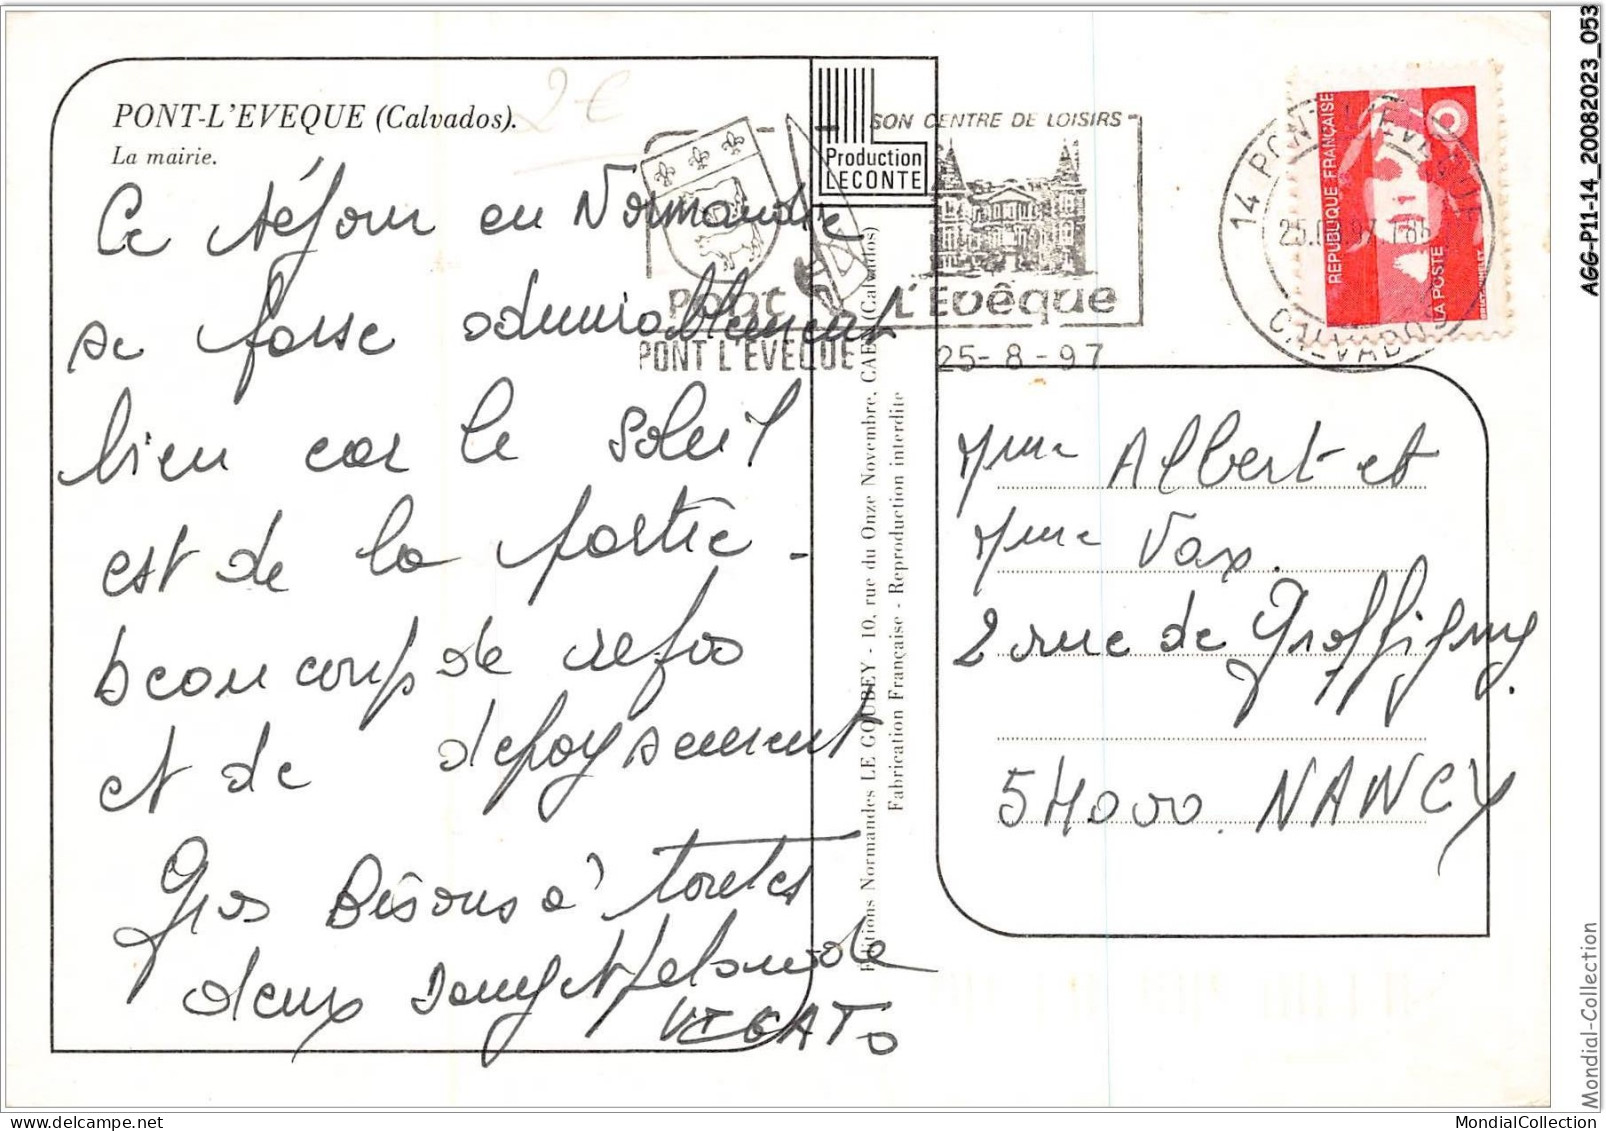 PONT-L'EVEQUE (Calvados).
La mairie.
2€
Ce séjour en Normandie
se passe admirablement
bien car le soleil
est de la partie -
beaucoup de repos
et de depaysement
Gros Bisous à toutes
deux
VIGATO
Production
LECONTE
SON CENTRE DE LOISIRS
Pont L'Evêque
PONT L'EVEQUE
25-8-97
14 PONT L'EVEQUE
CALVADOS
REPUBLIQUE FRANÇAISE
LA POSTE
Editions Normandes LE GOUBEY - 10, rue du Onze Novembre, CAEN (Calvados)
Fabrication Française - Reproduction interdite
Mme Albert et
Mme Vax.
2 rue de Graffigny.
54000. NANCY
AGG-P11-14_20082023_053
Mondial-Collection
MondialCollection